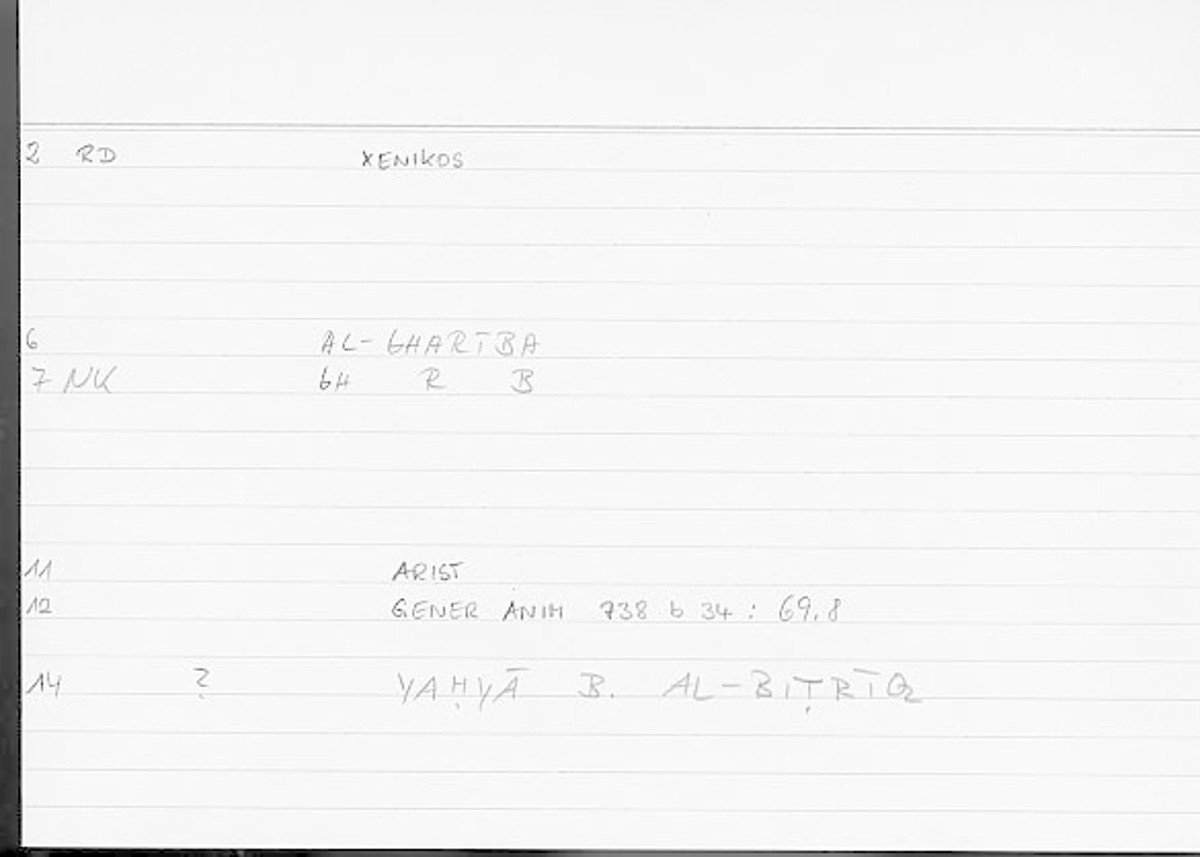 2 RD XENIKOS
6 AL-GHARĪBA
7 NK GH R B
11 ARIST
12 GENER ANIM 738 b 34 : 69.8
14 ? YAḤYĀ B. AL-BIṬRĪQ